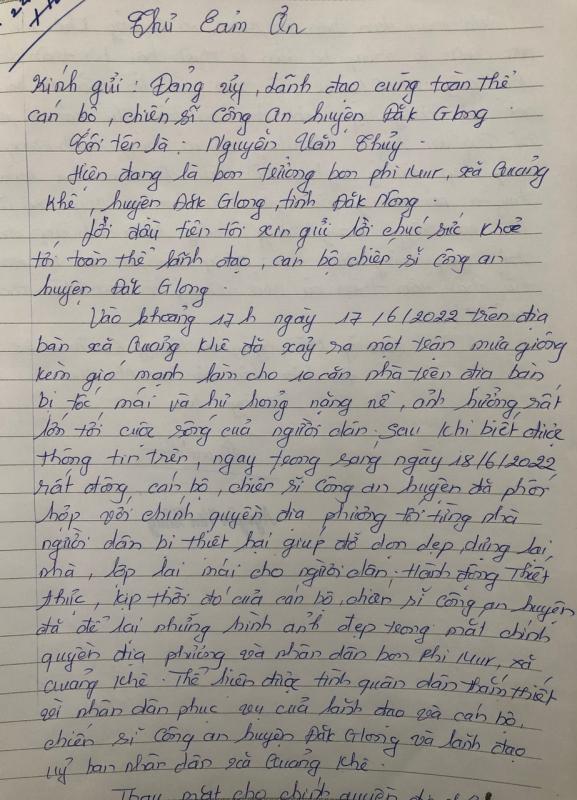 Thư Cảm Ơn
Kính gửi : Đảng ủy, lãnh đạo cùng toàn thể
cán bộ, chiến sĩ Công An huyện Đắk Glong
Tôi tên là : Nguyễn Văn Thủy.
Hiện đang là bon trưởng bon phi Mur, xã Quảng
Khê, huyện Đắk Glong, tỉnh Đắk Nông.
Lời đầu tiên tôi xin gửi lời chúc sức khoẻ
tới toàn thể lãnh đạo, cán bộ chiến sĩ Công an
huyện Đắk Glong.
Vào khoảng 17h ngày 17/6/2022 trên địa
bàn xã Quảng Khê đã xảy ra một trận mưa giông
kèm gió mạnh làm cho 10 căn nhà trên địa bàn
bị tốc mái và hư hỏng nặng nề, ảnh hưởng rất
lớn tới cuộc sống của người dân. Sau khi biết được
thông tin trên, ngay trong sáng ngày 18/6/2022
rất đông, cán bộ, chiến sĩ Công an huyện đã phối
hợp với chính quyền địa phương tới từng nhà
người dân bị thiệt hại giúp đỡ dọn dẹp, dựng lại
nhà, lợp lại mái cho người dân. Hành động Thiết
thực, kịp thời đó của cán bộ, chiến sĩ Công an huyện
đã để lại những hình ảnh đẹp trong mắt chính
quyền địa phương và nhân dân bon phi Mur, xã
Quảng Khê. Thể hiện được tình quân dân thắm thiết
vì nhân dân phục vụ của lãnh đạo và cán bộ,
chiến sĩ Công an huyện Đắk Glong và lãnh đạo
uỷ ban nhân dân xã Quảng Khê.
Thay mặt cho chính quyền